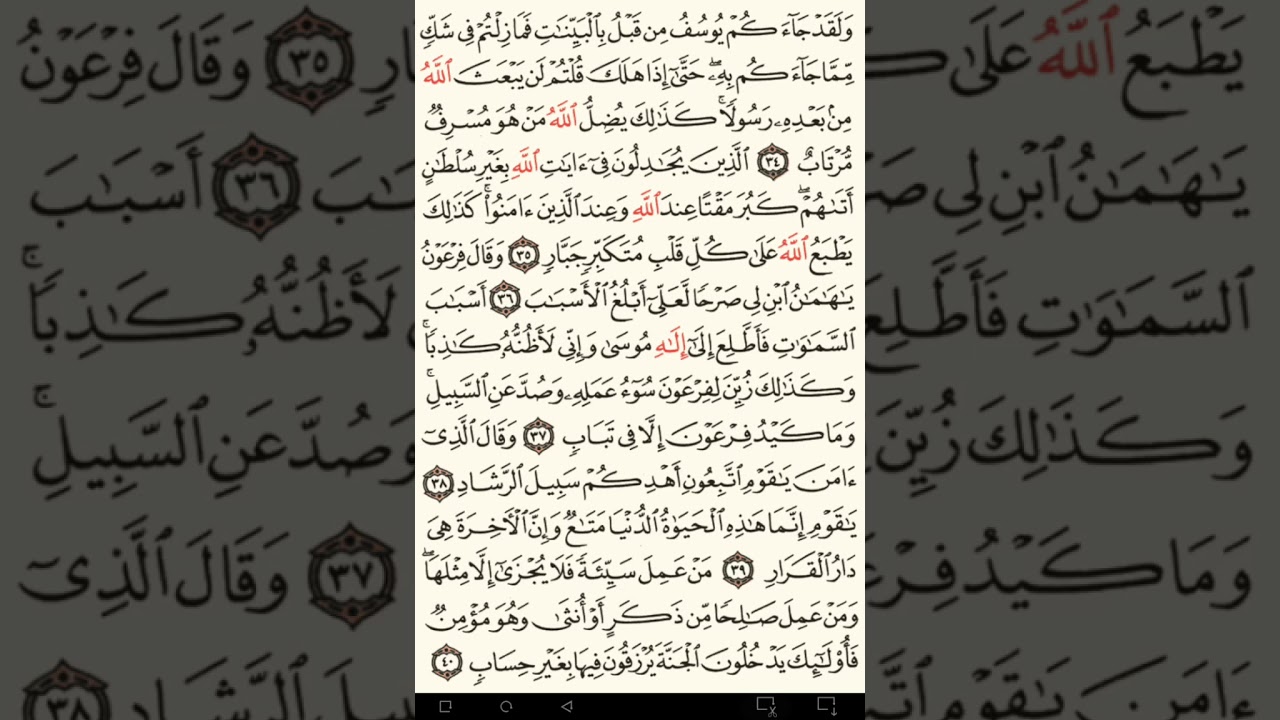 وَلَقَدْ جَآءَكُمْ يُوسُفُ مِن قَبْلُ بِٱلْبَيِّنَٰتِ فَمَا زِلْتُمْ فِى شَكٍّ
مِّمَّا جَآءَكُم بِهِۦۖ حَتَّىٰٓ إِذَا هَلَكَ قُلْتُمْ لَن يَبْعَثَ ٱللَّهُ
مِنۢ بَعْدِهِۦ رَسُولًاۚ كَذَٰلِكَ يُضِلُّ ٱللَّهُ مَنْ هُوَ مُسْرِفٌ
مُّرْتَابٌ ٣٤ ٱلَّذِينَ يُجَٰدِلُونَ فِىٓ ءَايَٰتِ ٱللَّهِ بِغَيْرِ سُلْطَٰنٍ
أَتَىٰهُمْۖ كَبُرَ مَقْتًا عِندَ ٱللَّهِ وَعِندَ ٱلَّذِينَ ءَامَنُوا۟ۚ كَذَٰلِكَ
يَطْبَعُ ٱللَّهُ عَلَىٰ كُلِّ قَلْبِ مُتَكَبِّرٍ جَبَّارٍ ٣٥ وَقَالَ فِرْعَوْنُ
يَٰهَٰمَٰنُ ٱبْنِ لِى صَرْحًا لَّعَلِّىٓ أَبْلُغُ ٱلْأَسْبَٰبَ ٣٦ أَسْبَٰبَ
ٱلسَّمَٰوَٰتِ فَأَطَّلِعَ إِلَىٰٓ إِلَٰهِ مُوسَىٰ وَإِنِّى لَأَظُنُّهُۥ كَٰذِبًاۚ
وَكَذَٰلِكَ زُيِّنَ لِفِرْعَوْنَ سُوٓءُ عَمَلِهِۦ وَصُدَّ عَنِ ٱلسَّبِيلِۚ
وَمَا كَيْدُ فِرْعَوْنَ إِلَّا فِى تَبَابٍ ٣٧ وَقَالَ ٱلَّذِىٓ
ءَامَنَ يَٰقَوْمِ ٱتَّبِعُونِ أَهْدِكُمْ سَبِيلَ ٱلرَّشَادِ ٣٨
يَٰقَوْمِ إِنَّمَا هَٰذِهِ ٱلْحَيَوٰةُ ٱلدُّنْيَا مَتَٰعٌ وَإِنَّ ٱلْءَاخِرَةَ هِىَ
دَارُ ٱلْقَرَارِ ٣٩ مَنْ عَمِلَ سَيِّئَةً فَلَا يُجْزَىٰٓ إِلَّا مِثْلَهَاۖ
وَمَنْ عَمِلَ صَٰلِحًا مِّن ذَكَرٍ أَوْ أُنثَىٰ وَهُوَ مُؤْمِنٌ
فَأُو۟لَٰٓئِكَ يَدْخُلُونَ ٱلْجَنَّةَ يُرْزَقُونَ فِيهَا بِغَيْرِ حِسَابٍ ٤٠